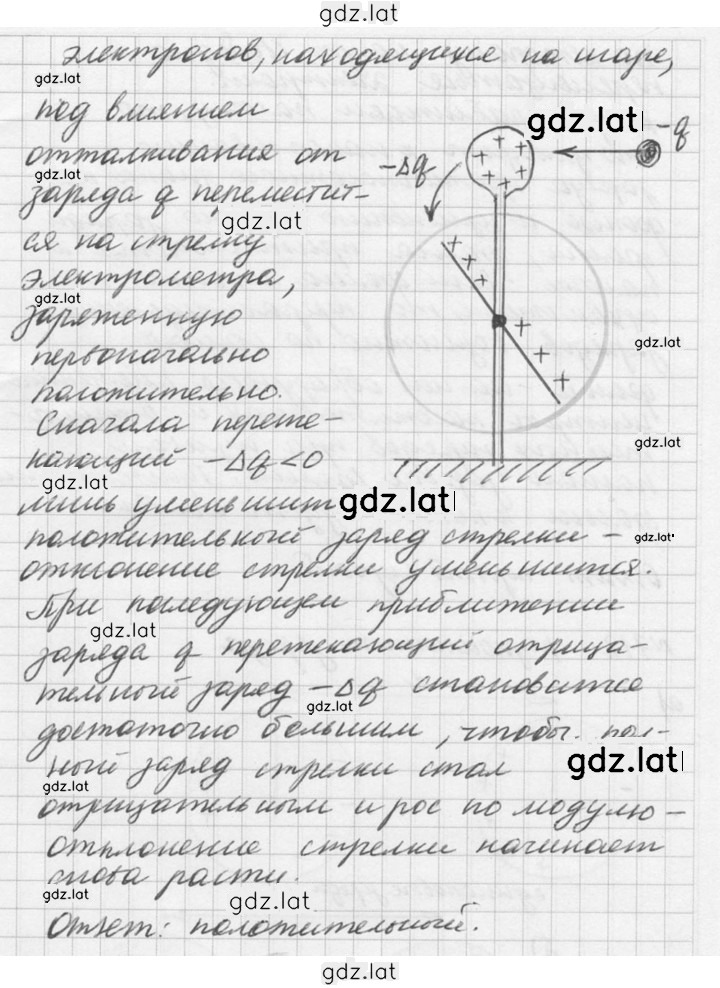 gdz.lat
электронов, находящихся на шаре,
gdz.lat
под влиянием
gdz.lat
-q
отталкивания от
-Δq
gdz.lat
заряда q переместит-
gdz.lat
ся на стрелку
электрометра,
gdz.lat
заряженную
gdz.lat
первоначально
положительно.
Сначала перете-
gdz.lat
кающий -Δq<0
gdz.lat
лишь уменьшит
gdz.lat
положительный заряд стрелки -
gdz.lat
отклонение стрелки уменьшится.
При последующем приближении
gdz.lat
заряда q перетекающий отрица-
тельный заряд -Δq становится
gdz.lat
достаточно большим, чтобы пол-
ный заряд стрелки стал
gdz.lat
gdz.lat
отрицательным и рос по модулю -
отклонение стрелки начинает
снова расти.
gdz.lat
gdz.lat
Ответ: положительный.
gdz.lat